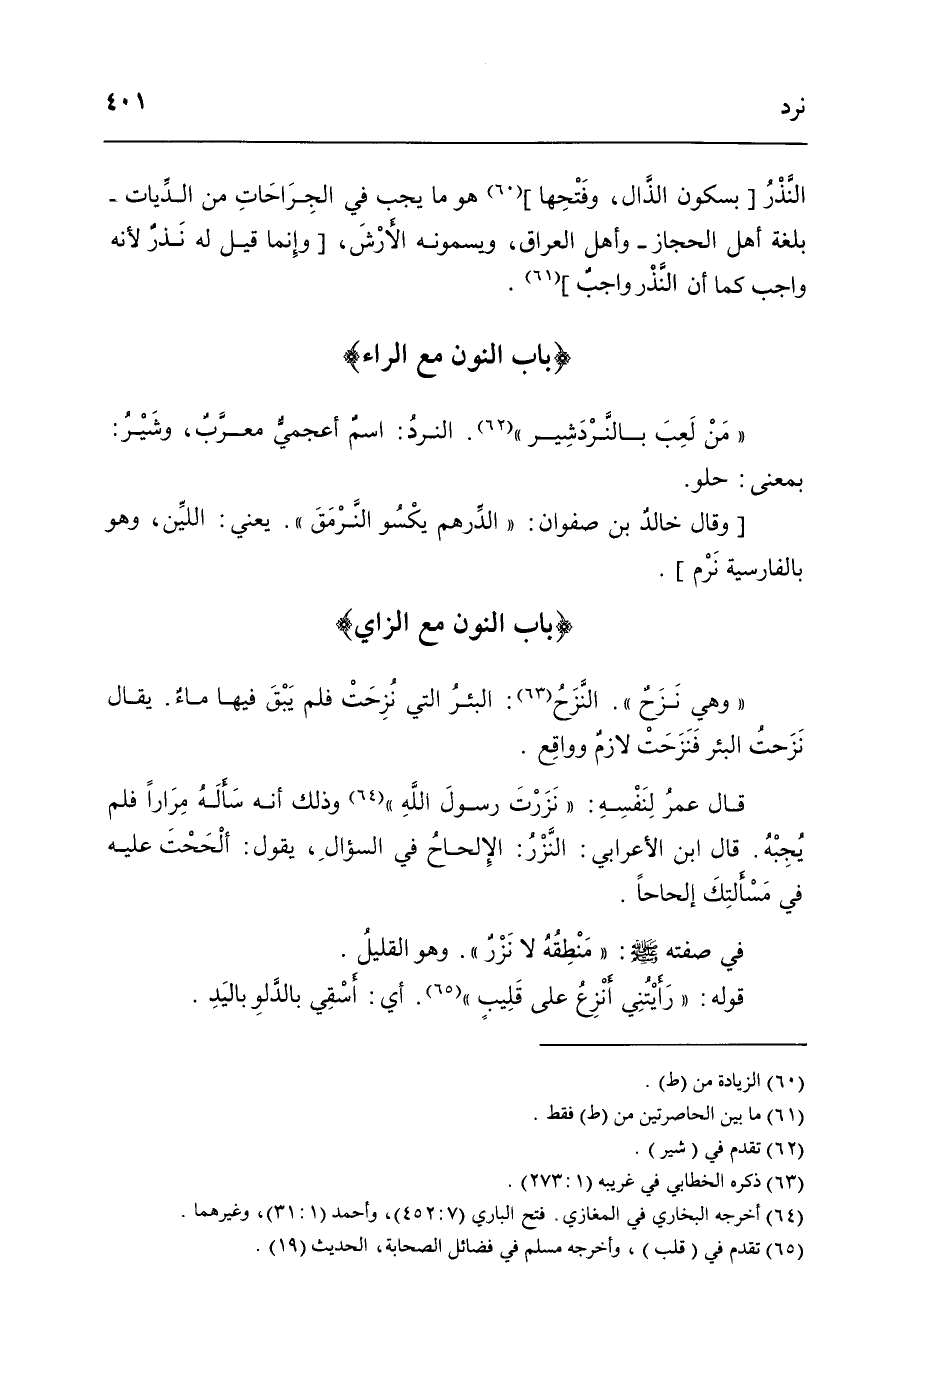 نرد ٤٠١
النَّذْرُ [ بسكون الذَّال، وفَتْحِها ](٦٠) هو ما يجب في الجِرَاحَاتِ من الدِّيات ـ
بلغة أهل الحجاز ـ وأهل العراق، ويسمونه الأَرْشَ، [ وإنما قيل له نَذرٌ لأنه
واجب كما أن النَّذْر واجبٌ ](٦١) .
﴿باب النون مع الراء﴾
« مَنْ لَعِبَ بالنَّرْدَشِير »(٦٢). النردُ: اسمٌ أعجميٌّ معرَّبٌ، وشَيْرُ:
بمعنى: حلو.
[ وقال خالدٌ بن صفوان: « الدِّرهم يكْسُو النَّرْمَقَ ». يعني: الليِّن، وهو
بالفارسية نَرْم ] .
﴿باب النون مع الزاي﴾
« وهي نَزَحٌ ». النَّزَحُ(٦٣): البئرُ التي نُزِحَتْ فلم يَبْقَ فيها ماءٌ. يقال
نَزَحتُ البئر فَنَزَحَتْ لازمٌ وواقِع .
قال عمرُ لِنَفْسِهِ: « نَزَرْتَ رسولَ اللَّهِ »(٦٤) وذلك أنه سَأَلَهُ مِرَاراً فلم
يُجِبْهُ. قال ابن الأعرابي: النَّزْرُ: الإلحاحُ في السؤالِ، يقول: ألْحَحْتَ عليه
في مَسْأَلتِكَ إلحاحاً .
في صفته ﷺ: « مَنْطِقُهُ لا نَزْرٌ ». وهو القليلُ .
قوله: « رَأَيْتُنِي أَنْزِعُ على قَلِيبٍ »(٦٥). أي: أَسْقِي بالدَّلوِ باليَدِ .
(٦٠) الزيادة من (ط) .
(٦١) ما بين الحاصرتين من (ط) فقط .
(٦٢) تقدم في ( شير ) .
(٦٣) ذكره الخطابي في غريبه (١: ٢٧٣) .
(٦٤) أخرجه البخاري في المغازي. فتح الباري (٧: ٤٥٢)، وأحمد (١: ٣١)، وغيرهما .
(٦٥) تقدم في ( قلب ) ، وأخرجه مسلم في فضائل الصحابة، الحديث (١٩) .